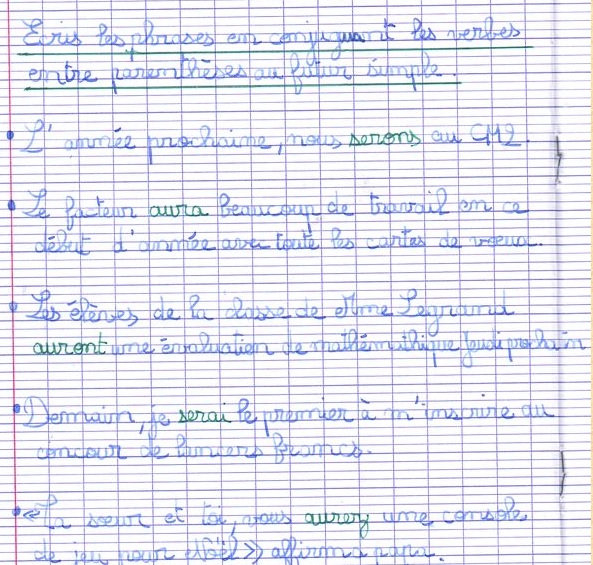 Ecris les phrases en conjuguant les verbes
entre parenthèses au futur simple.
L'année prochaine, nous serons au CM2.
Le facteur aura beaucoup de travail en ce
début d'année avec toute les cartes de voeux.
Les élèves de la classe de Mme Legrand
auront une évaluation de mathémathique jeudi prochain
Demain, je serai le premier à m'inscrire au
concour de lanciers francs.
«Ta soeur et toi, vous aurez une console
de jeu pour Noël» affirma papa.